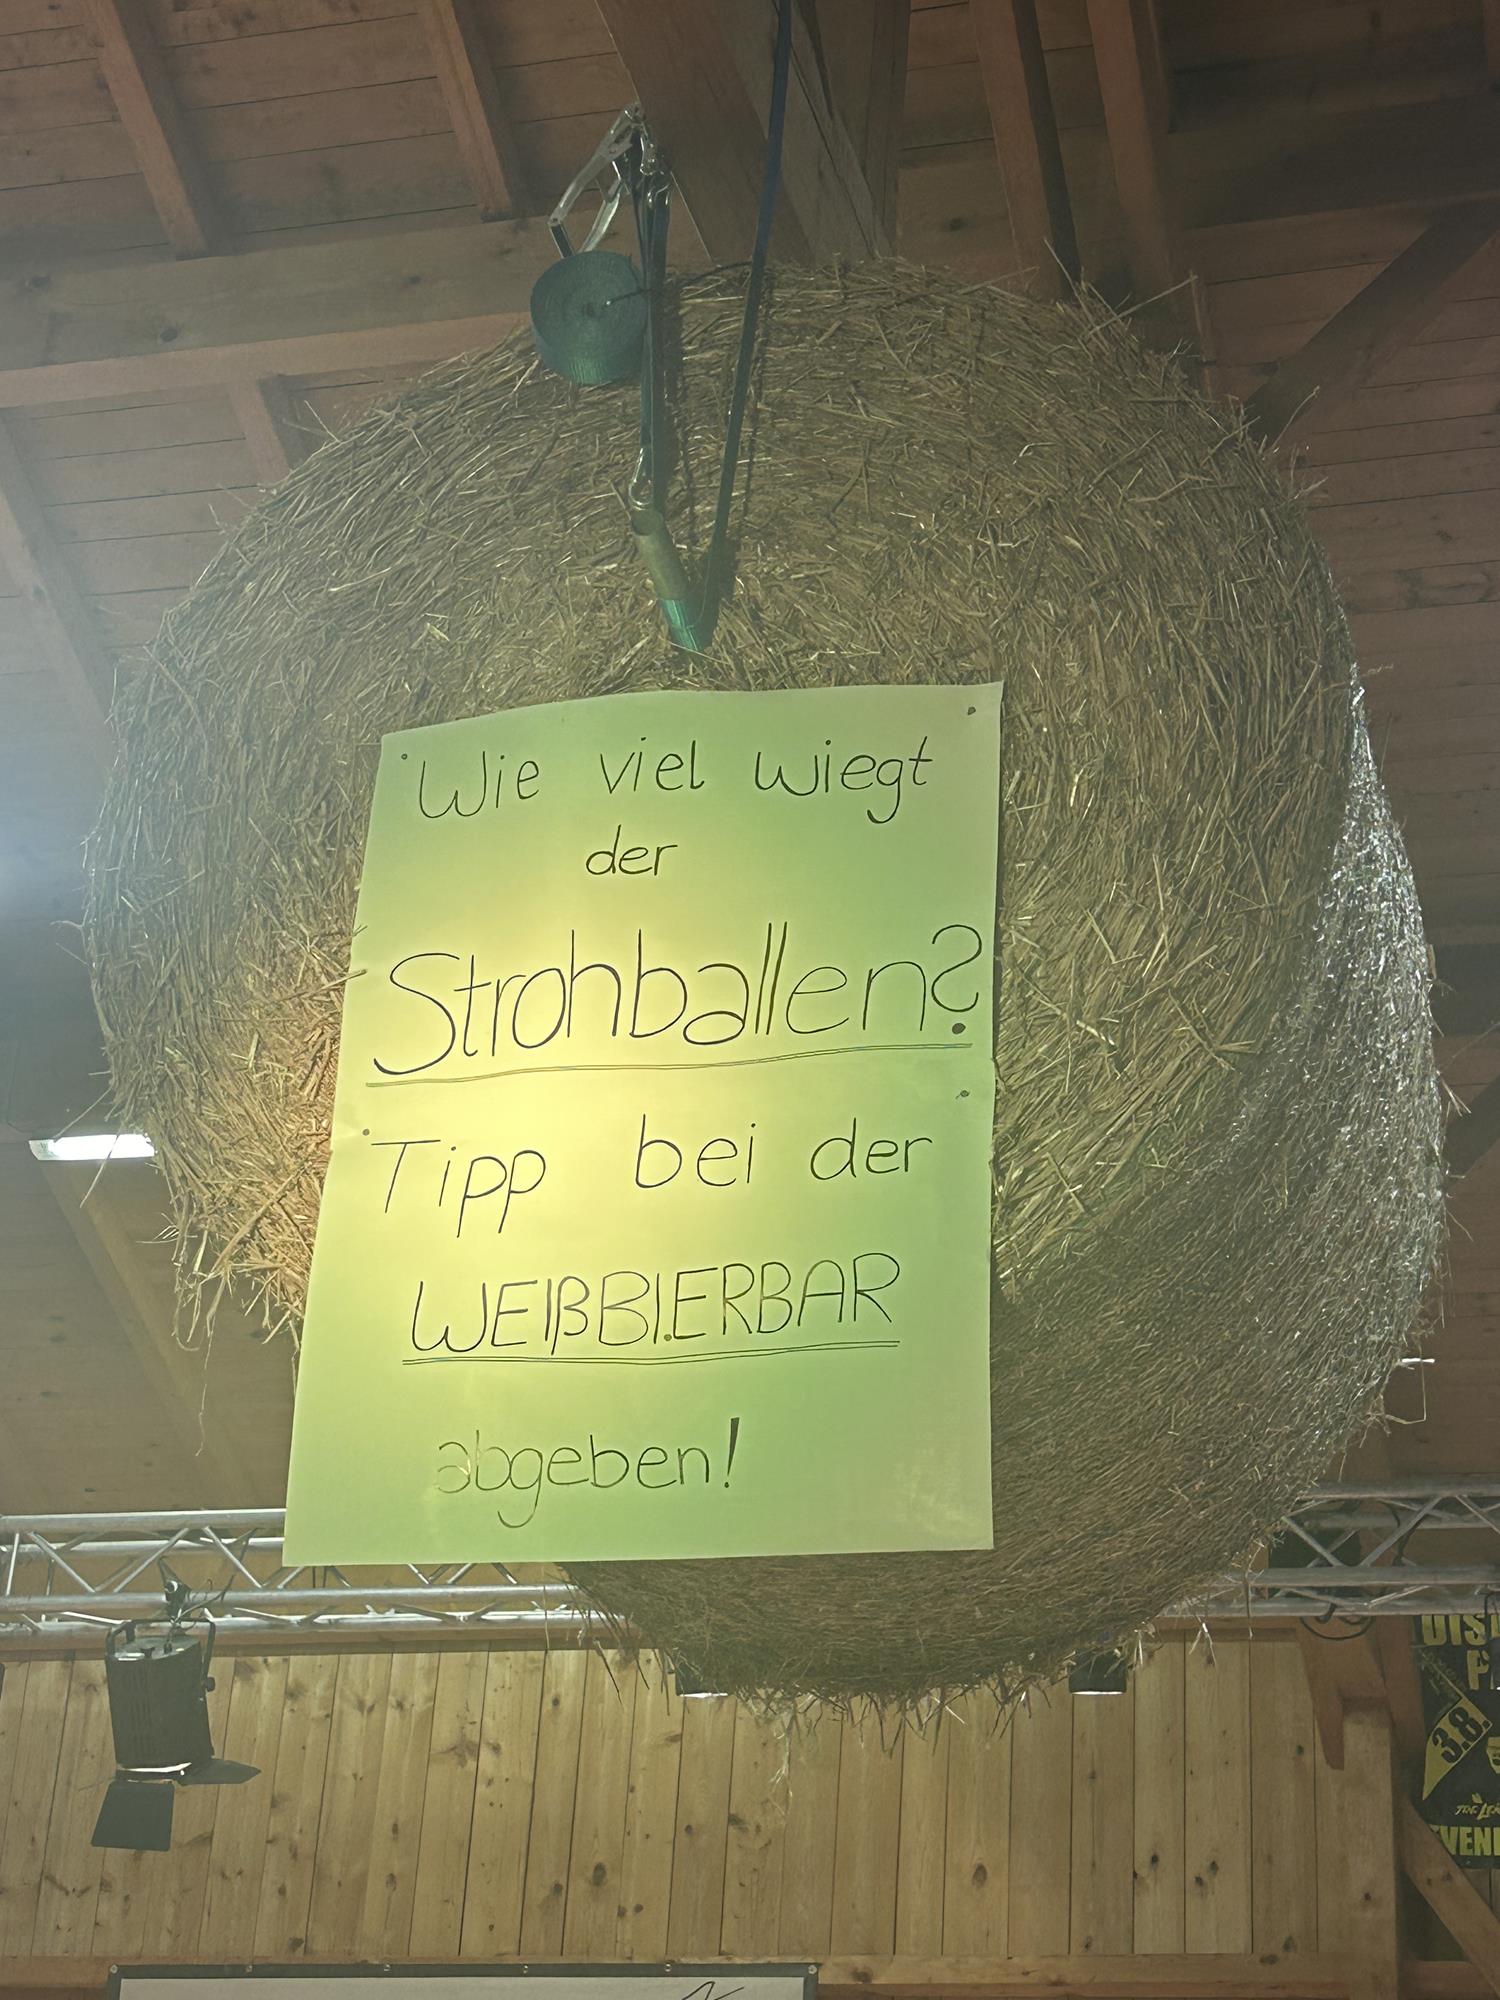 Wie viel wiegt
der
Strohballen?
Tipp bei der
WEIßBIERBAR
abgeben!
3.8.